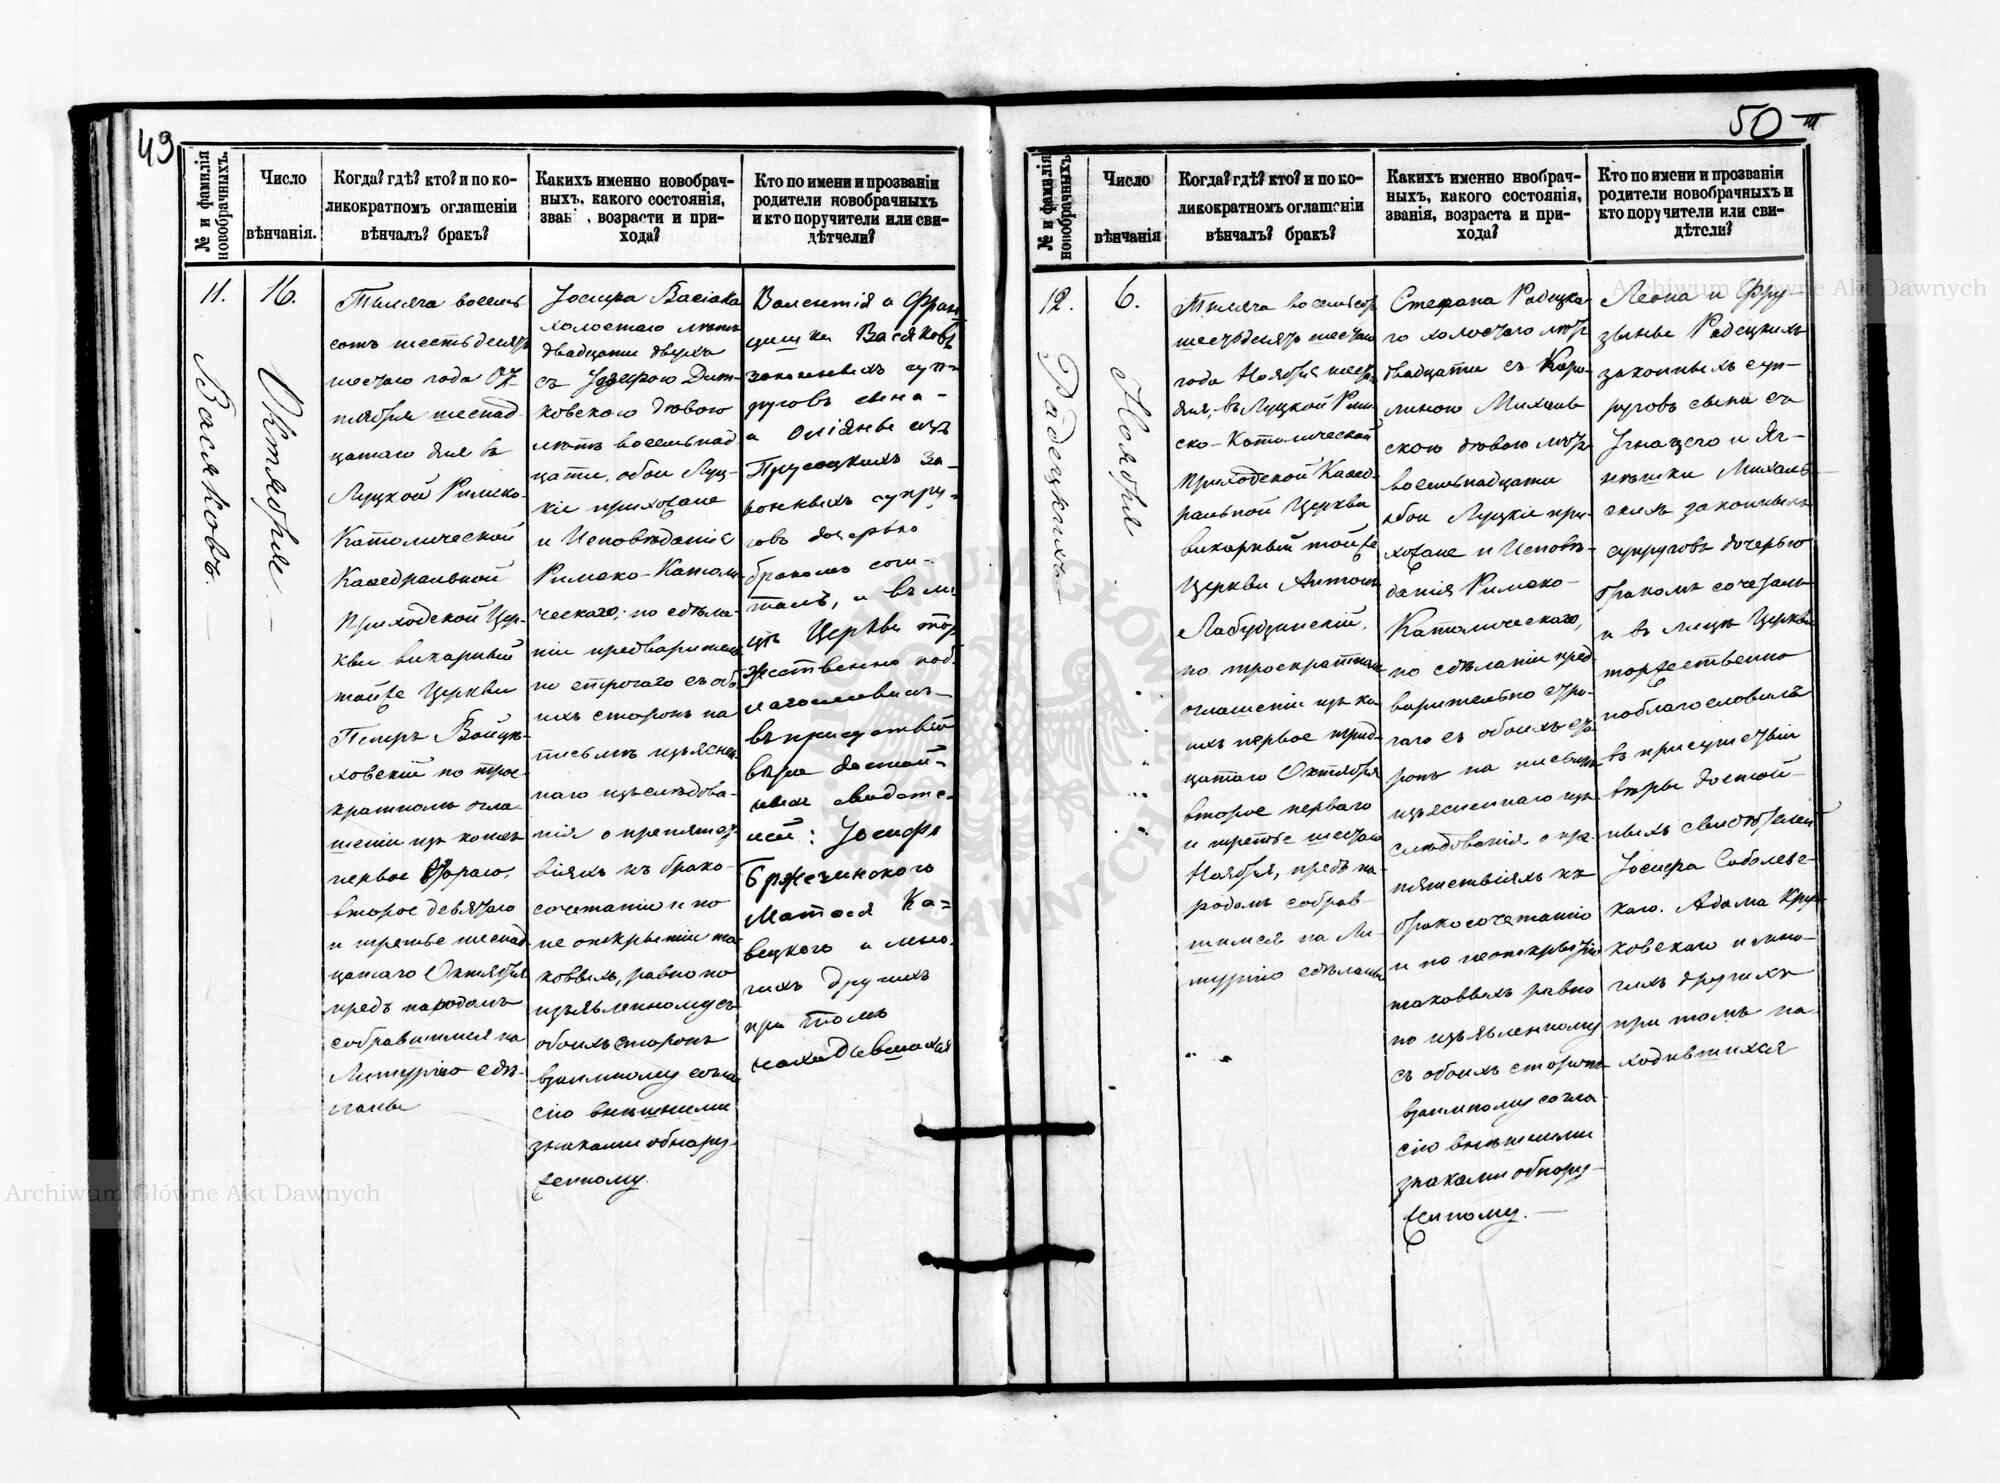 49
№ и фамилія новобрачныхъ.
Число вѣнчанія.
Когда? гдѣ? кто? и по ко-
ликократномъ оглашеніи
вѣнчалъ? бракъ?
Каких именно новобрач-
ныхъ, какого состоянія,
зван , возрасти и при-
хода?
Кто по имени и прозваніи
родители новобрачныхъ
и кто поручители или сви-
дѣтчели?
11.
Васяковъ.
16.
Октября.
Тысяча восемь
сотъ шестьдесятъ
шестаго года Ок
тября шеснад
цатаго дня въ
Луцкой Римско-
Католической
Каѳедральной
Приходской Цер-
кви викарный
тойже Церкви
Петръ Войце-
ховскій по трое-
кратномъ огла
шеніи изъ коихъ
первое втораго,
второе девятаго
и третье шеснад
цатаго Октября
предъ народомъ
собравшимся на
Литургію сдѣ-
ланы
Іосифа Васіака
холостаго лѣтъ
двадцати двухъ
съ
ковскою дѣвою
лѣтъ восемьнад
цати, обои Луц-
кіе прихожане
и Исповѣданія
Римско-Католи
ческаго, по сдѣла-
ніи предваритель
но строгаго съ обо-
ихъ сторонъ на
письмѣ изъяснен
наго изъслѣдова-
нія о препятст
віяхъ къ брако-
сочетанію и по
не открытіи та-
ковыхъ, равно по
изъявленному съ
обоихъ сторонъ
взаимному согла
сію внѣшними
знаками обнару-
женному.
Валентія и Фран
цишки Васяковъ
законныхъ суп-
руговъ сына-
и
Прусацкихъ за-
конныхъ супру-
говъ дочерью
бракомъ соче-
талъ, и въ ли
цѣ Церкви тор
жественно поб-
лагословилъ-
въ присутствіи
вѣры достой-
ныхъ свидѣте-
лей: Іосифа
Бржезинского
Матвея Ка-
вецкого и мно-
гихъ другихъ
при томъ
находившихся
50
№ и фамилія новобрачныхъ.
Число вѣнчанія
Когда? гдѣ? кто? и по ко-
ликократномъ оглашеніи
вѣнчалъ? бракъ?
Какихъ именно нвобрач-
ныхъ, какого состоянія,
званія, возраста и при-
хода?
Кто по имени и прозваніи
родители новобрачныхъ и
кто поручители или сви-
дѣтели?
12.
Радецкихъ
6.
Ноября
Тысяча восемьсотъ
шестьдесятъ шестаго
года Ноября шестаго
дня, въ Луцкой Рим-
ско-Католической
Приходской Каѳед-
ральной Церкви
викарный тойже
Церкви Антоній
Лабудзинскій,
по троекратномъ
оглашеніи изъ ко-
ихъ первое трид-
цатаго Октября
второе перваго
и третье шестаго
Ноября, предъ на-
родомъ собрав-
шимся на Ли-
тургію сдѣланы
Стефана Радецка
го холостаго лѣтъ
двадцати съ Каро-
линою Михаль
скою дѣвою лѣтъ
восемьнадцати
обои Луцкіе при-
хожане и Исповѣ-
данія Римско-
Католическаго,
по сдѣланіи пред-
варительно стро-
гаго съ обоихъ сто
ронъ на письмѣ
изъясненнаго изъ
слѣдованія о пре-
пятствіяхъ къ
бракосочетанію
и по неоткрытіи
таковыхъ равно
по изъявленному
съ обоихъ сторонъ
взаимному согла-
сію внѣшними
знаками обнару-
женному.
Леона и Фру-
зыны Радецкихъ
законныхъ суп-
руговъ сына съ
Игнацего и Аг-
нѣшки Михаль-
скихъ законныхъ
супруговъ дочерью
бракомъ сочеталъ
и въ лицѣ Церкви
торжественно
поблагословилъ
въ присутствіи
вѣры достой-
ныхъ свидѣтелей
Іосифа Соболевс-
каго. Адама Круп
ковскаго и мно-
гихъ другихъ
при томъ на-
ходившихся
Archiwum Główne Akt Dawnych
Archiwum Główne Akt Dawnych